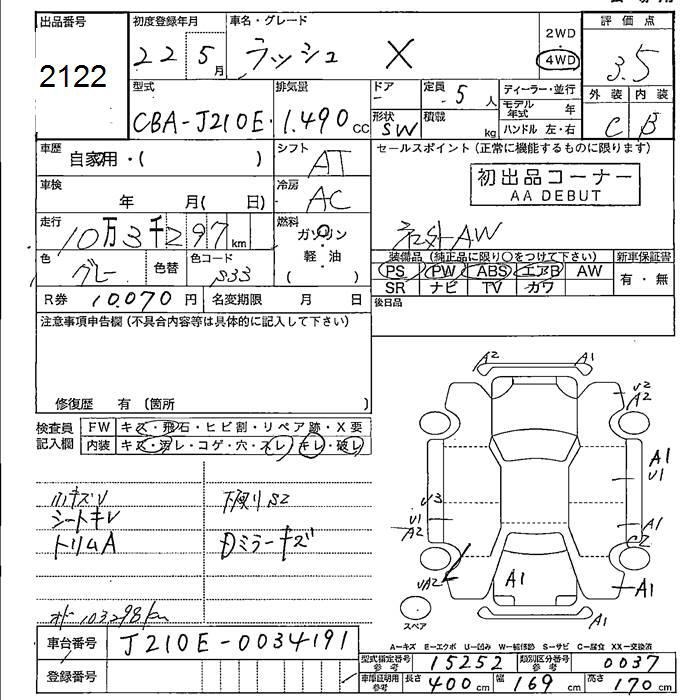 出品番号 初度登録年月 車名・グレード 2WD 評価点
2122 22 5月 ラッシュ X 4WD 3.5
型式 排気量 ドア 定員 5人 ディーラー・並行 外装 内装
CBA-J210E 1.490cc 形状 SW 積載 kg モデル年式 年 C B
ハンドル 左・右
車歴 自家用・( ) シフト AT セールスポイント (正常に機能するものに限ります)
車検 年 月( 日) 冷房 AC 初出品コーナー
AA DEBUT
走行 10万3千297km 燃料 ガソリン 社外AW
色 グレー 色替 色コード S33 軽・油 ( )
装備品 (純正品に限り○をつけて下さい) 新車保証書
PS PW ABS エアB AW 有・無
SR ナビ TV カワ
R券 10,070円 名変期限 月 日 後日品
注意事項申告欄 (不具合内容等は具体的に記入して下さい)
修復歴 有 (箇所
検査員 FW キズ・飛石・ヒビ割・リペア跡・X要
記入欄 内装 キズ・汚レ・コゲ・穴・スレ・キレ・破レ
シートキレ 下廻りS2
トリムA Dミラーキズ
103298km
車台番号 J210E-0034191
登録番号
A2 A1
V2
A2
A1
U1
U3
U1
A2
A1
UA2
A1
A1
A1
スペア
A―キズ E―エクボ U―凹み W―補修跡 S―サビ C―腐食 XX―交換済
型式指定番号 参考 15252 類別区分番号 参考 0037
車庫証明用 参考 長さ 400cm 幅 169cm 高さ 170cm